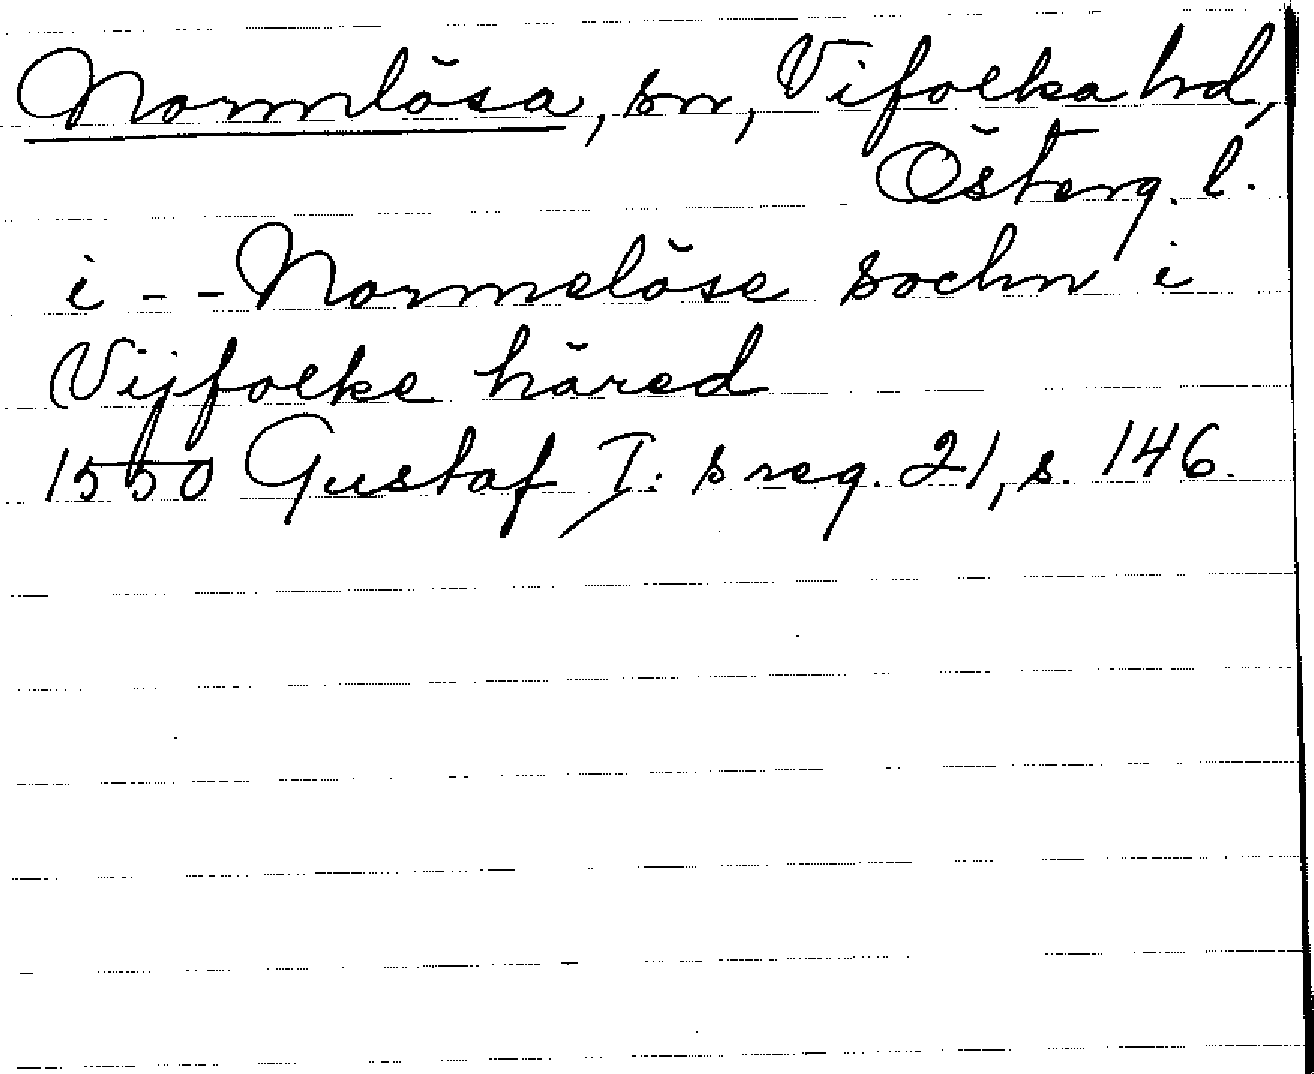 Normlösa, sn, Vifolka hd,
Österg. l.
i - - Normelöse sochn i
Vijfolke häred
1550 Gustaf I:s reg. 21, s. 146.